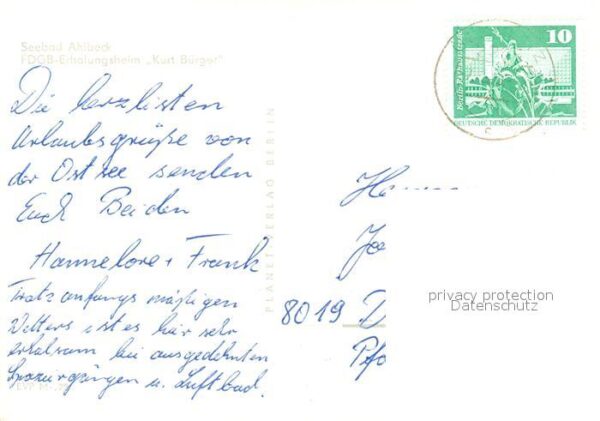 Seebad Ahlbeck
FDGB-Erholungsheim „Kurt Bürger"
Die herzlisten
Urlaubsgrüße von
der Ostsee senden
Euch Beiden
Hannelore + Frank
Trotz anfangs mäßigen
Wetters ist es hier sehr
erholsam bei ausgedehnten
Spaziergängen u. Luftbad.
EVP M
PLANET-VERLAG BERLIN
10
Berlin
DEUTSCHE DEMOKRATISCHE REPUBLIK
8019 D
privacy protection
Datenschutz